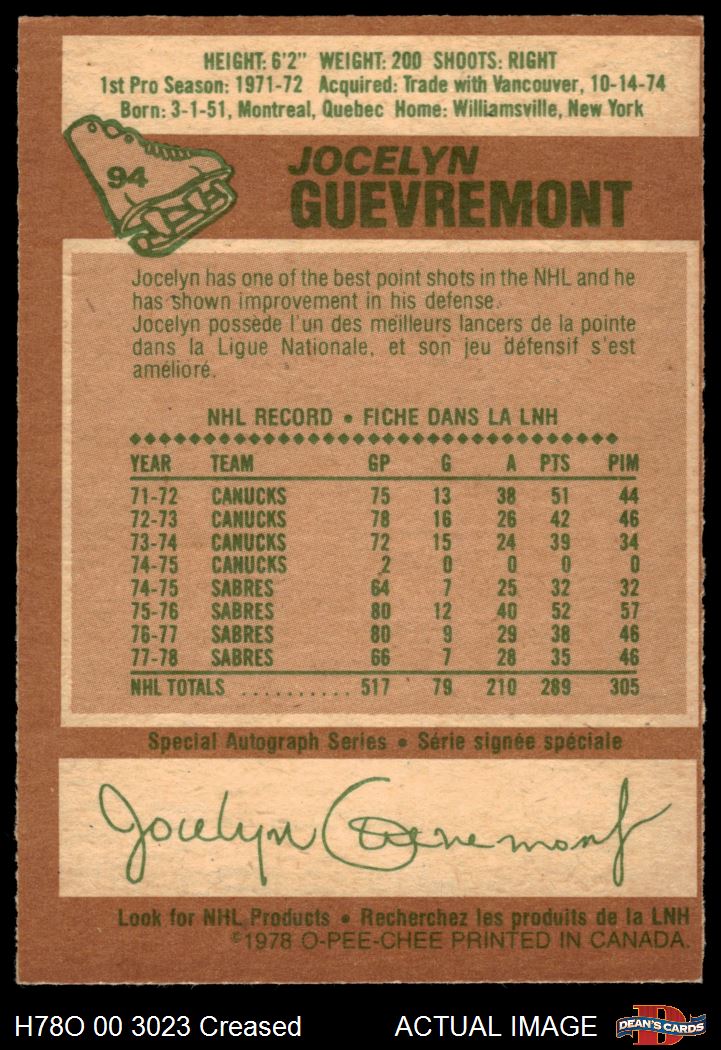 HEIGHT: 6'2" WEIGHT: 200 SHOOTS: RIGHT
1st Pro Season: 1971-72 Acquired: Trade with Vancouver, 10-14-74
Born: 3-1-51, Montreal, Quebec Home: Williamsville, New York
94
JOCELYN
GUEVREMONT
Jocelyn has one of the best point shots in the NHL and he
has shown improvement in his defense.
Jocelyn possède l'un des meilleurs lancers de la pointe
dans la Ligue Nationale, et son jeu défensif s'est
amélioré.
NHL RECORD • FICHE DANS LA LNH
YEAR TEAM GP G A PTS PIM
71-72 CANUCKS 75 13 38 51 44
72-73 CANUCKS 78 16 26 42 46
73-74 CANUCKS 72 15 24 39 34
74-75 CANUCKS 2 0 0 0 0
74-75 SABRES 64 7 25 32 32
75-76 SABRES 80 12 40 52 57
76-77 SABRES 80 9 29 38 46
77-78 SABRES 66 7 28 35 46
NHL TOTALS .......... 517 79 210 289 305
Special Autograph Series • Série signée spéciale
Jocelyn Guevremont
Look for NHL Products • Recherchez les produits de la LNH
©1978 O-PEE-CHEE PRINTED IN CANADA.
H78O 00 3023 Creased ACTUAL IMAGE D DEAN'S CARDS